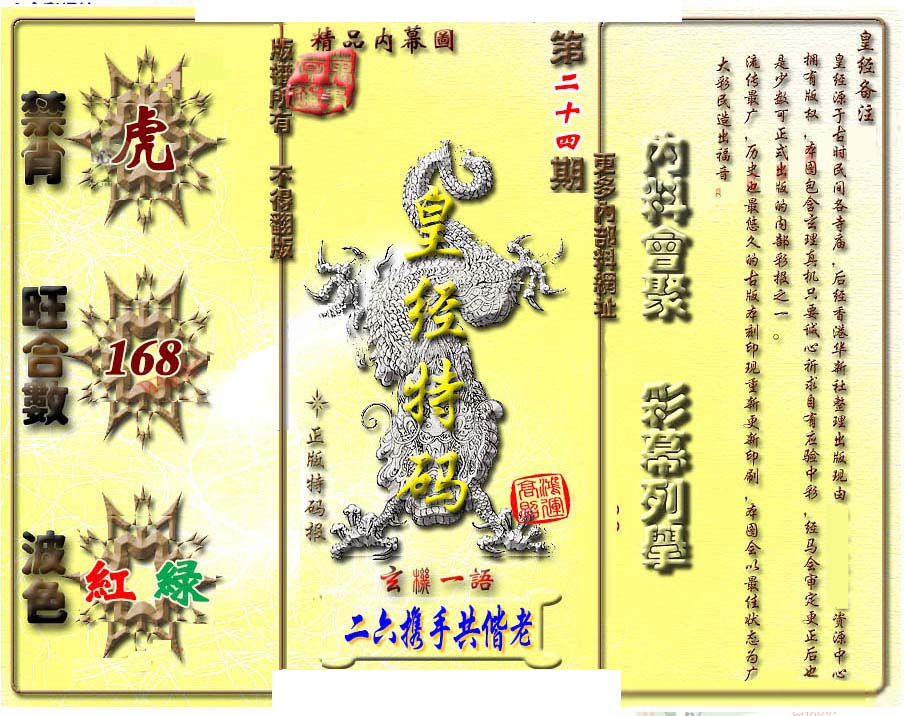 皇经备注
皇经源于古时民间各寺庙,后经香港华新社整理出版现由 资源中心
拥有版权,本图包含玄理真机只要诚心祈求自有应验中彩,经马会审定更正后也
是少数可正式出版的内部彩报之一。
流传最广,历史也最悠久的古版本刻印现重新更新印刷,本图会以最佳状态为广
大彩民造出福音
内料會聚
彩幕列舉
更多內部料網址
第二十四期
精品内幕圖
皇经特码
鴻運高照
正版特码报
玄機一語
二六携手共偕老
版權所有 不得翻版
禁肖
虎
旺合數
168
波色
紅 綠